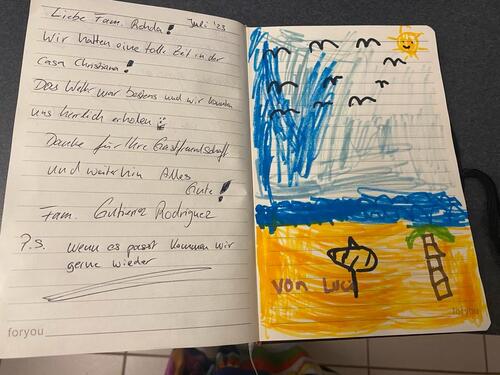 Liebe Fam. Rohda! Juli '23
Wir hatten eine tolle Zeit in der
Casa Christiana!
Das Wetter war bestens und wir konnten
uns herrlich erholen
Danke für Ihre Gastfreundschaft
und weiterhin Alles
Gute!
Fam. Gutierrez Rodriguez
P.S. wenn es passt kommen wir
gerne wieder
foryou
von Luca
foryou